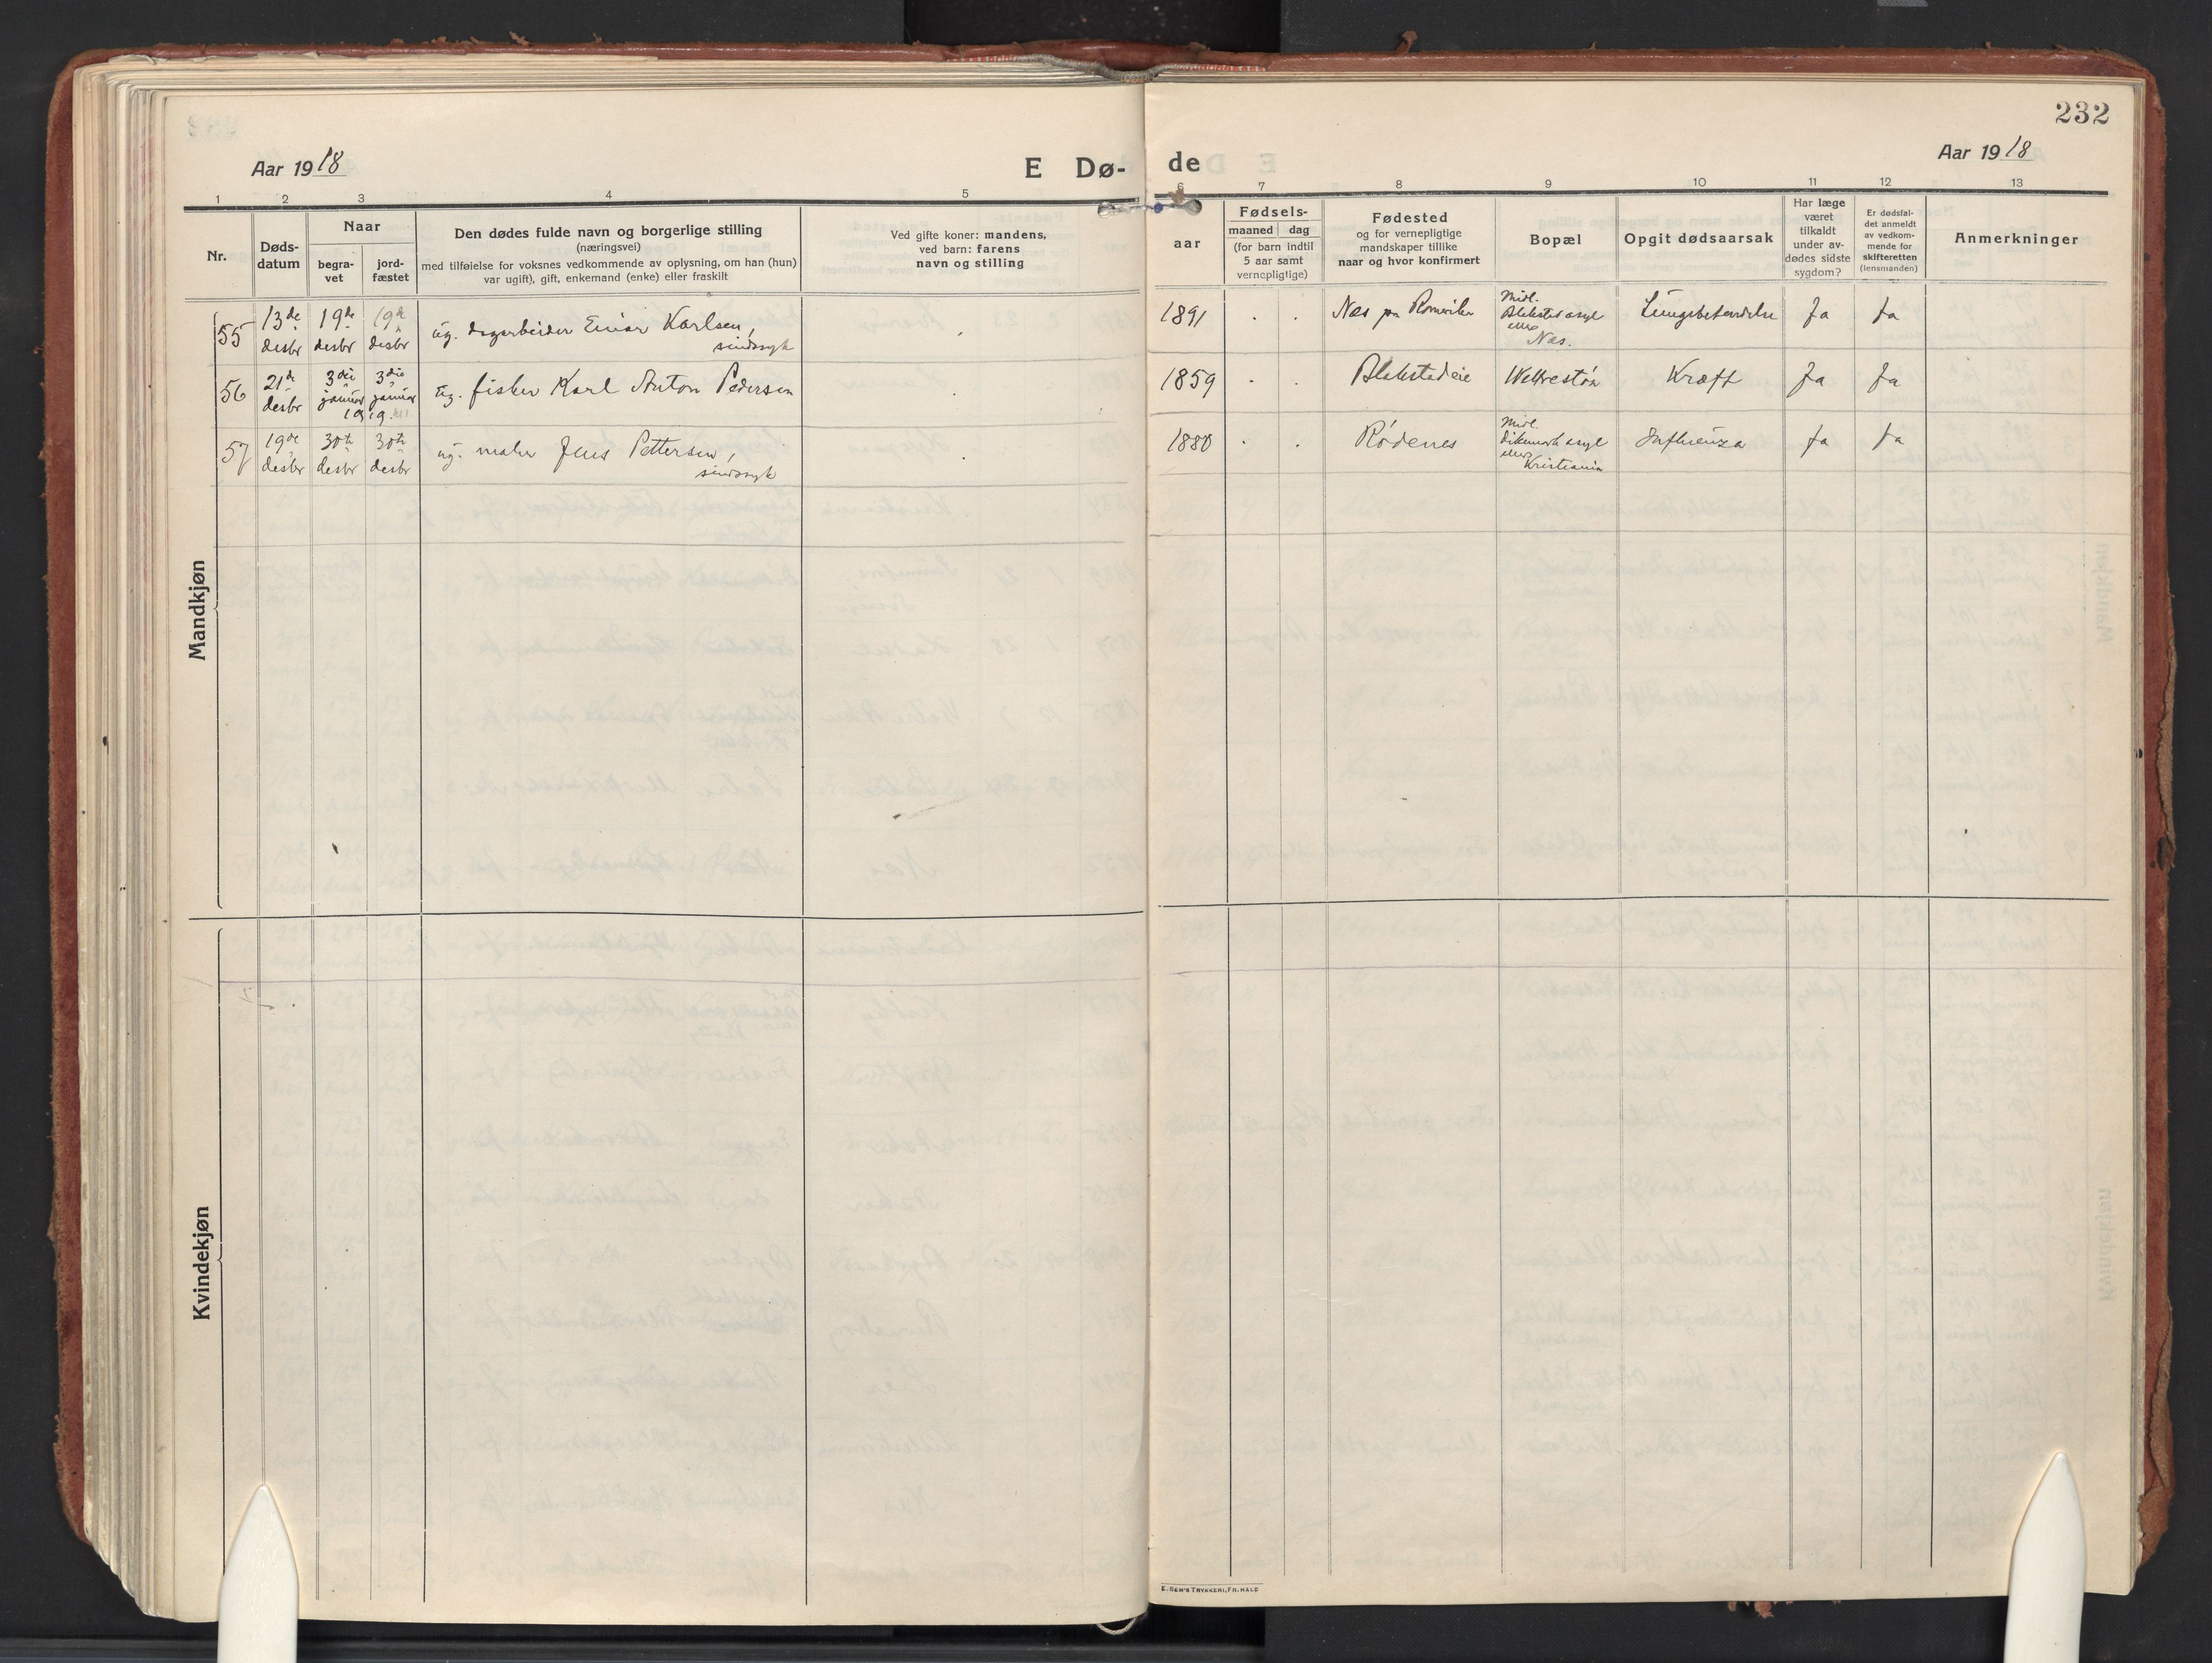 232
Aar 1918
E Dø-
de
Aar 1918
1 2 3 4 5
6 7 8 9 10 11 12 13
Nr.
Døds-
datum
Naar
begra-
vet
jord-
fæstet
Den dødes fulde navn og borgerlige stilling
(næringsvei)
med tilføielse for voksnes vedkommende av oplysning, om han (hun)
var ugift), gift, enkemand (enke) eller fraskilt
Ved gifte koner: mandens,
ved barn: farens
navn og stilling
aar
Fødsels-
maaned dag
(for barn indtil
5 aar samt
vernepligtige)
Fødested
og for vernepligtige
mandskaper tillike
naar og hvor konfirmert
Bopæl
Opgit dødsaarsak
Har læge
været
tilkaldt
under av-
dødes sidste
sygdom?
Er dødsfal-
det anmeldt
av vedkom-
mende for
skifteretten
(lensmanden)
Anmerkninger
Mandkjøn
55
13de
desbr
19de
desbr
19de
desbr
ug. dagarbeider Einar Karlsen,
sindssyk
1891
Næs paa Romerike
Midl.
Blakstad asyl
ellers
Næs.
Lungebetændelse
Ja
Ja
56
21de
desbr
3die
januar
19
3die
januar
19.
ug. fisker Karl Anton Pedersen
1859
Blakstadeie
Kræft
Ja
Ja
57
19de
desbr
30te
desbr
30te
desbr
ug. maler Jens Pettersen,
sindssyk
1880
Rødenes
Midl.
Dikemark asyl
ellers
Kristiania
Influenza
Ja
Ja
Kvindekjøn
E. SEM'S TRYKKERI, FR. HALD